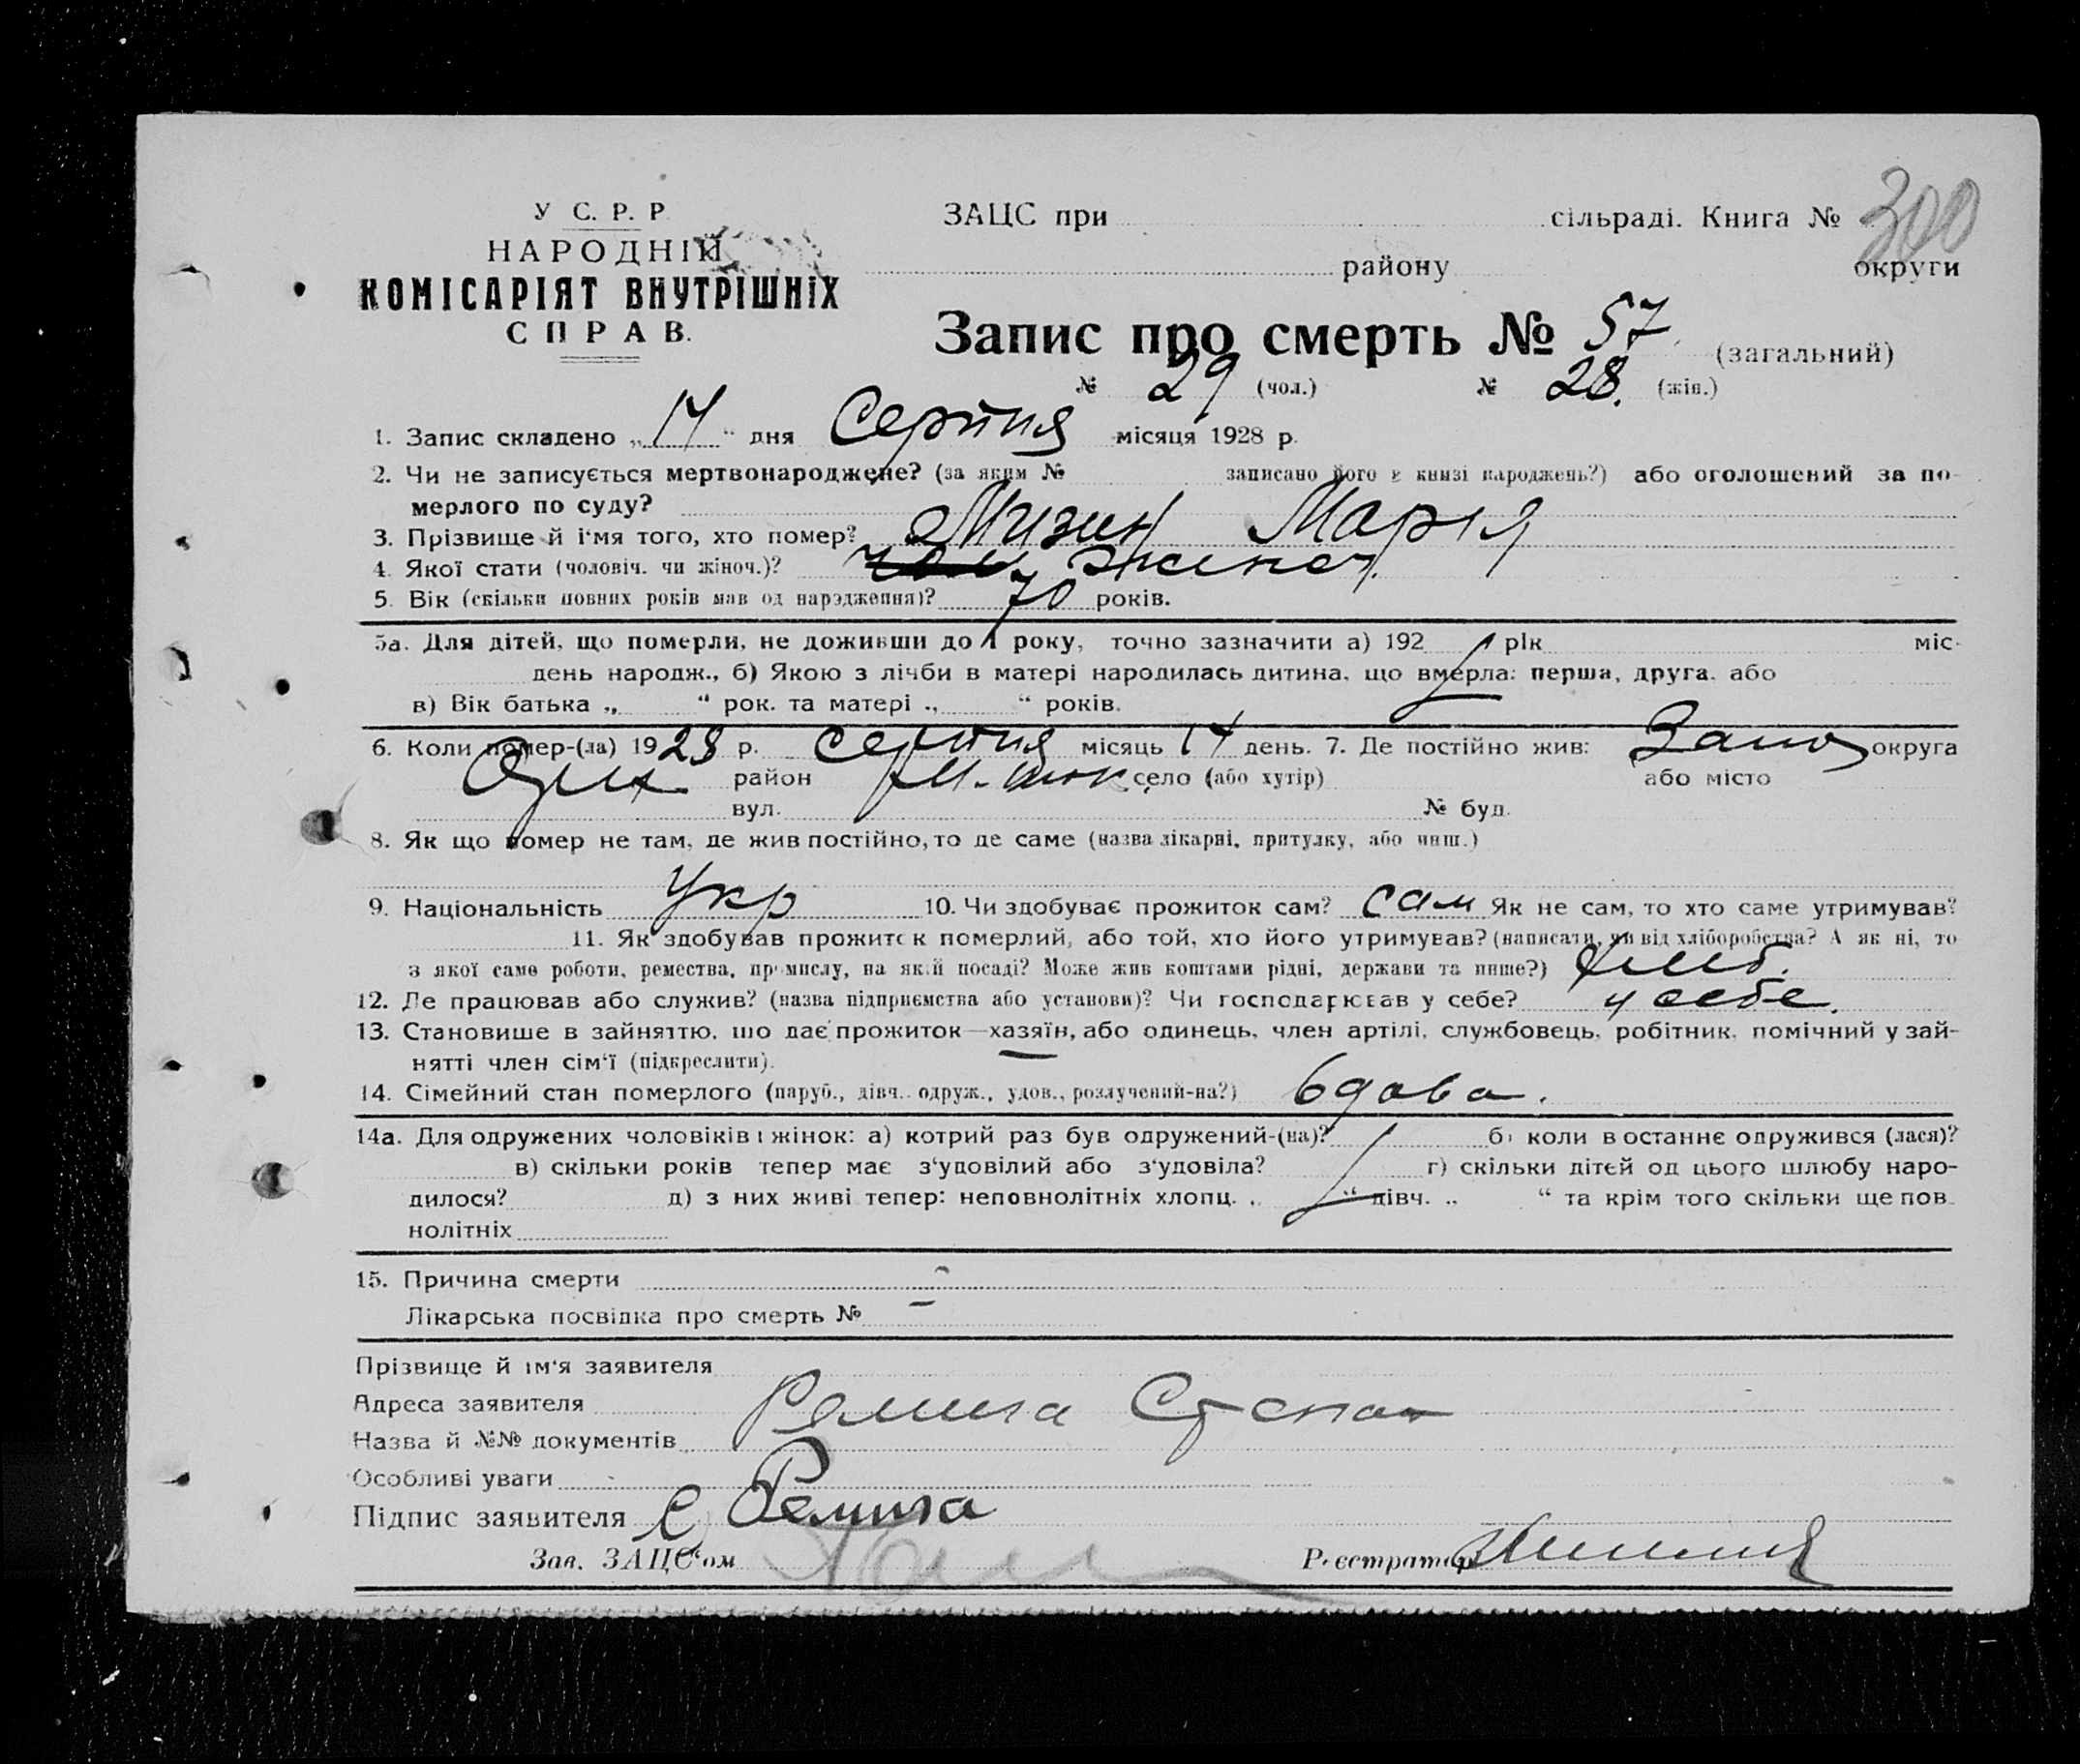 У С. Р. Р.
НАРОДНІЙ
КОМІСАРІЯТ ВНУТРІШНІХ
СПРАВ.
ЗАЦС при сільраді. Книга № 300
району округи
Запис про смерть № 57 (загальний)
№ 29 (чол.) № 28. (жін.)
1. Запис складено „14“ дня Серпня місяця 1928 р.
2. Чи не записується мертвонароджене? (за яким № записано його в книзі народжень?) або оголошений за по-
мерлого по суду?
3. Прізвище й ім'я того, хто помер? Мизин Марія
4. Якої стати (чоловіч. чи жіноч.)? жіноч.
5. Вік (скільки повних років мав од народження)? 70 років.
5а. Для дітей, що померли, не доживши до 1 року, точно зазначити а) 192 рік міс.
день народж., б) Якою з лічби в матері народилась дитина, що вмерла: перша, друга, або
в) Вік батька „ “ рок. та матері „ “ років.
6. Коли помер-(ла) 1928 р. серпня місяць 14 день. 7. Де постійно жив: Запо округа
район М. Ток. село (або хутір) або місто
вул. № буд.
8. Як що помер не там, де жив постійно, то де саме (назва лікарні, притулку, або инш.)
9. Національність Укр 10. Чи здобуває прожиток сам? сам Як не сам, то хто саме утримував?
11. Як здобував прожиток померлий, або той, хто його утримував? (написати, чи від хліборобства? А як ні, то
з якої саме роботи, ремества, промислу, на якій посаді? Може жив коштами рідні, держави та инше?) хліб.
12. Де працював або служив? (назва підприємства або установи)? Чи господарював у себе? у себе.
13. Становище в зайняттю, що дає прожиток—хазяїн, або одинець, член артілі, службовець, робітник, помічний у зай-
нятті член сім'ї (підкреслити).
14. Сімейний стан померлого (паруб., дівч., одруж., удов., розлучений-на?) вдова.
14а. Для одружених чоловіків і жінок: а) котрий раз був одружений-(на)? б) коли востаннє одружився (лася)?
в) скільки років тепер має з'удовілий або з'удовіла? г) скільки дітей од цього шлюбу наро-
дилося? д) з них живі тепер: неповнолітніх хлопц. „ “ дівч. „ “ та крім того скільки ще пов-
нолітніх
15. Причина смерти -
Лікарська посвідка про смерть № -
Прізвище й ім'я заявителя
Адреса заявителя Ремига Степан
Назва й №№ документів
Особливі уваги
Підпис заявителя С Ремига
Зав. ЗАЦС'ом Реєстратор